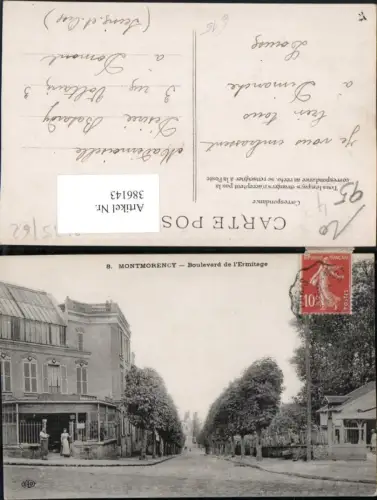 CARTE POS
Correspondance
Tous les pays étrangers n'acceptent pas la
correspondance au recto, se renseigner à la Poste
Je vous embrassent
bien tous
à Dimanche
Louise
Mademoiselle
Désirée
3 rue Voltaire 3
à Domont
(Seine et Oise)
Artikel Nr.
386143
95
4
10
8. MONTMORENCY — Boulevard de l'Ermitage
10c
ELD